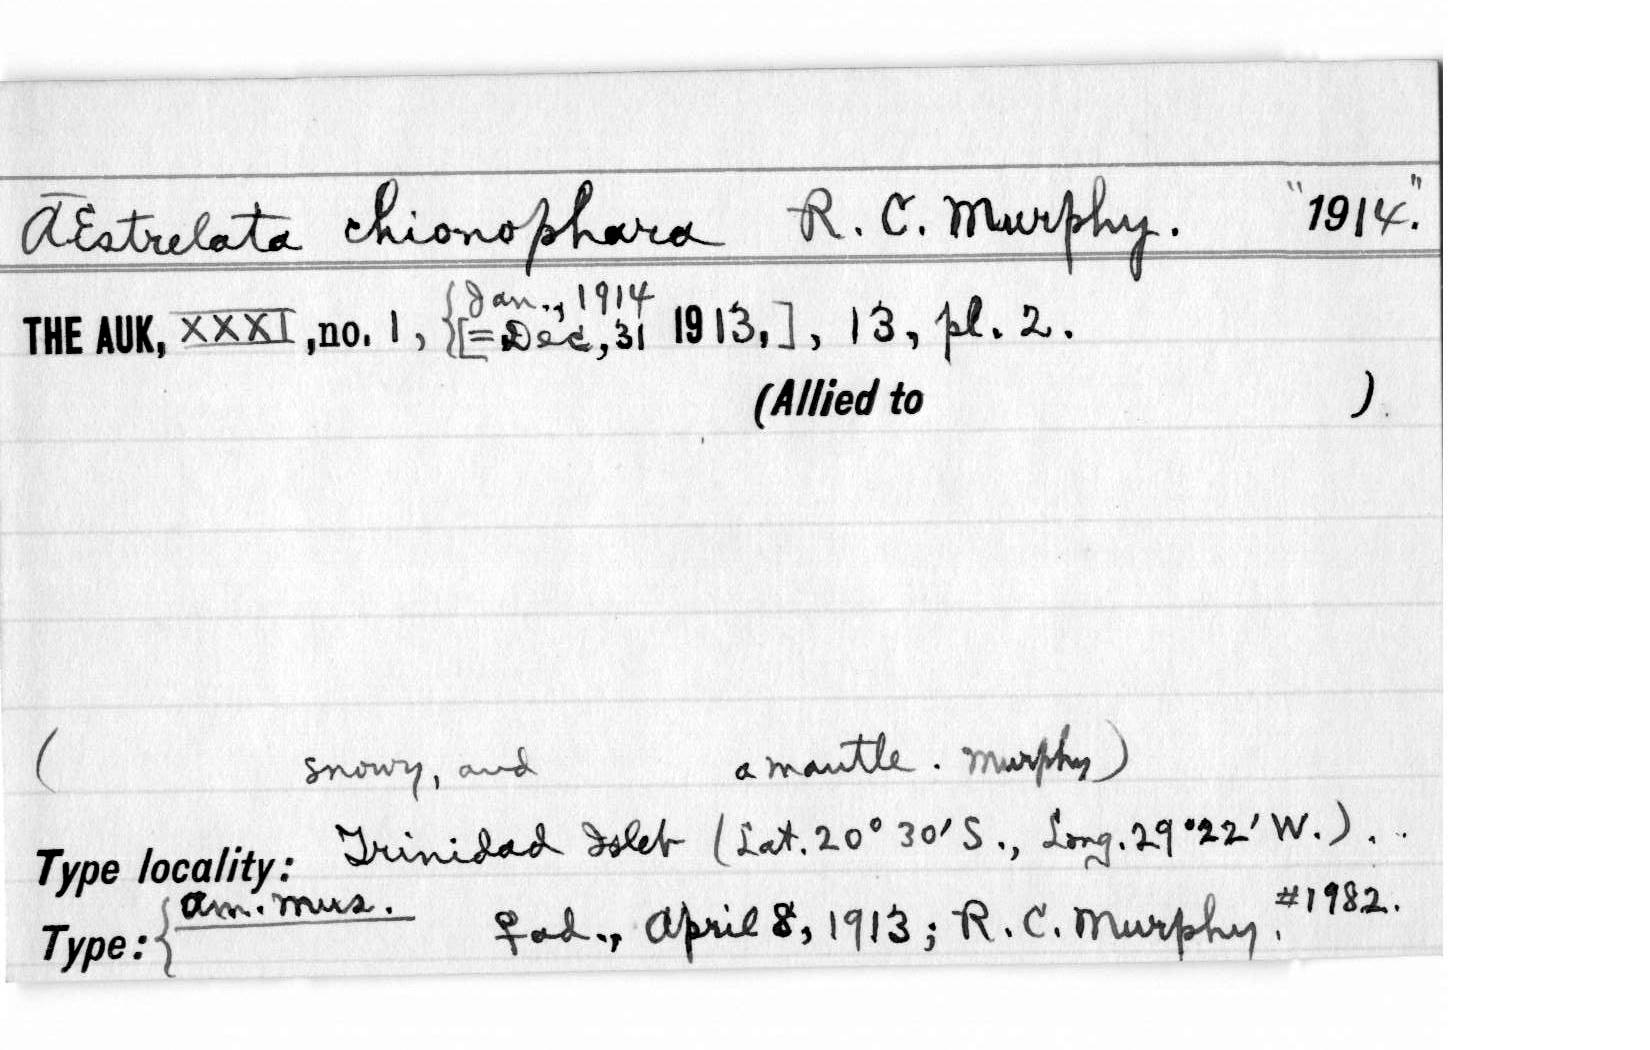 AEstrelata chionophara R. C. Murphy. "1914."
THE AUK, XXXI, no. 1, {Jan., 1914 [=Dec, 31 1913,], 13, pl. 2.
(Allied to )
( snowy, and a mantle. Murphy)
Type locality: Trinidad Islet (Lat. 20° 30' S., Long. 29° 22' W.).
Type: {Am. Mus. ♀ ad., April 8, 1913; R. C. Murphy. #1982.